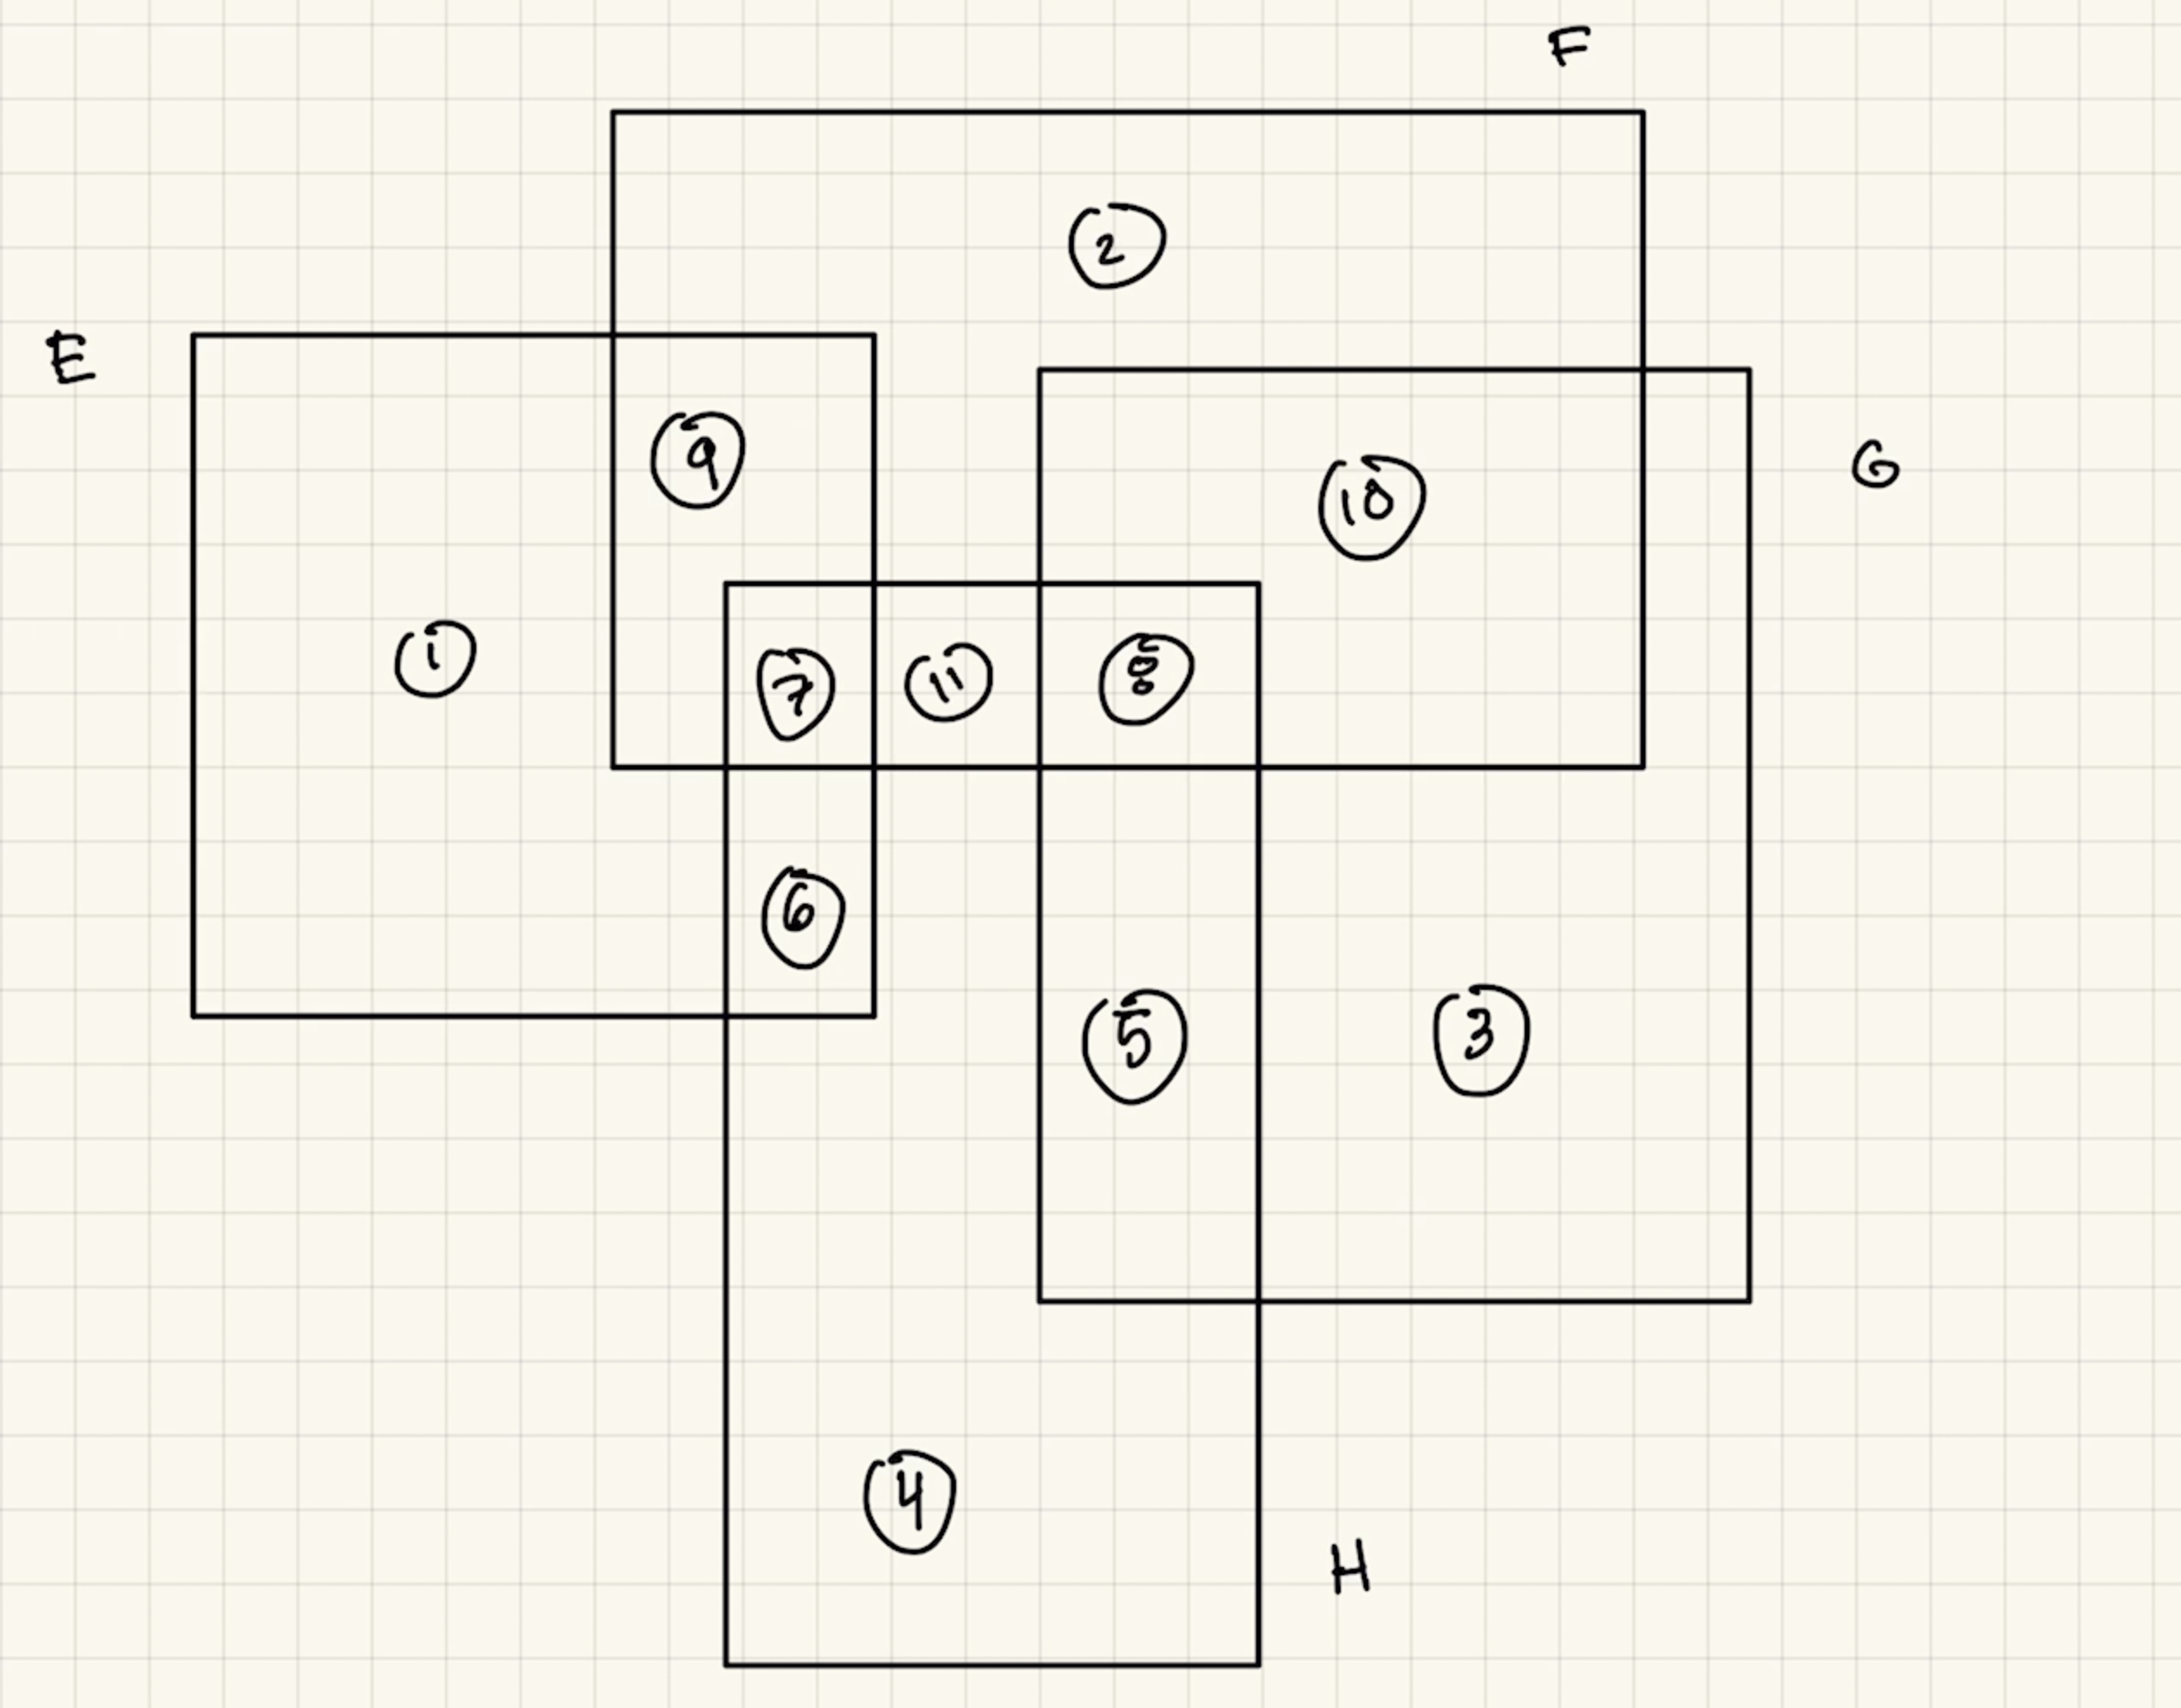 F
2
E
9
G
10
1
7
11
8
6
5
3
4
H